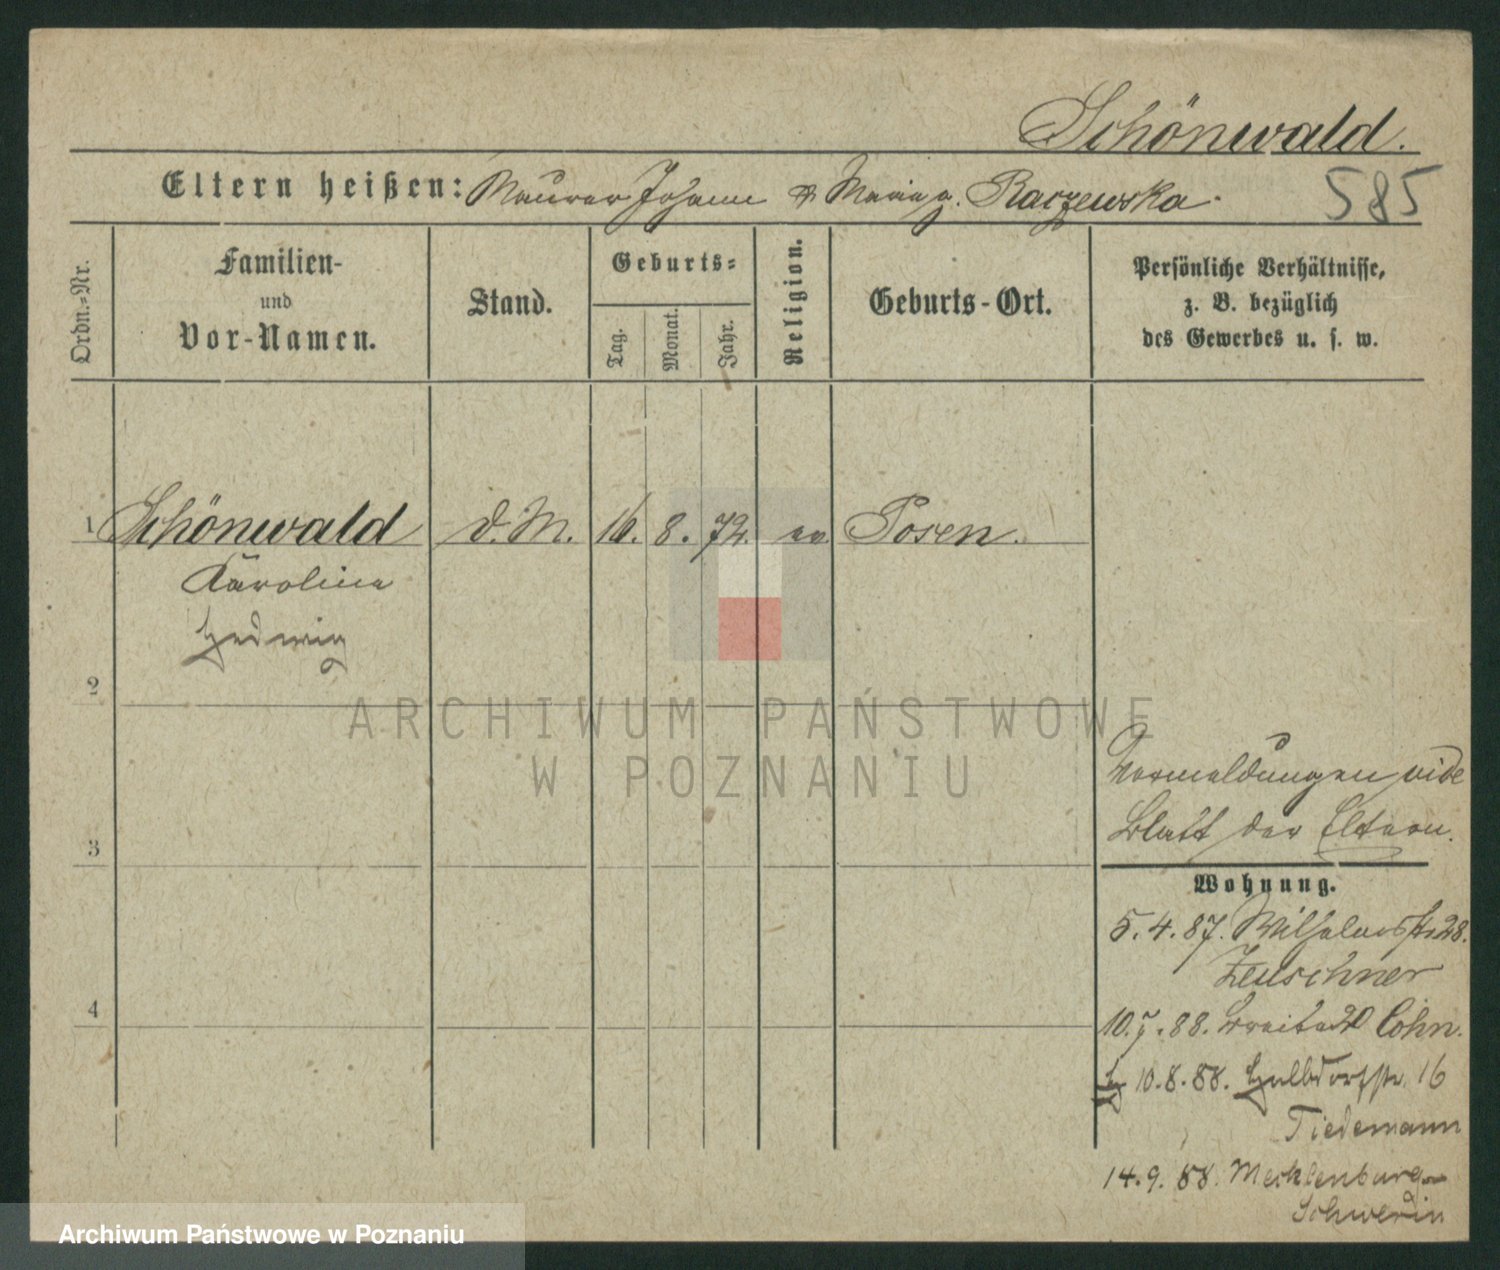 Schönwald.
Eltern heißen: Maurer Johann & Maria g. Raczewska.
585
Ordn.=Nr.
Familien-
und
Vor-Namen.
Stand.
Geburts=
Tag.
Monat.
Jahr.
Religion.
Geburts-Ort.
Persönliche Verhältnisse,
z. B. bezüglich
des Gewerbes u. s. w.
1 Schönwald d. M. 16. 8. 72. ev Posen.
Karolina
Hedwig
2
ARCHIWUM PAŃSTWOWE
W POZNANIU
Vormeldungen vide
Blatt der Eltern.
3
Wohnung.
5.4.87. Wilhelmstr 28.
Zeuschner
4
10.7.88. Breite 20 Cohn.
10.8.88. Halbdorfstr. 16
Tiedemann
14.9.88. Mecklenburg-
Schwerin
Archiwum Państwowe w Poznaniu